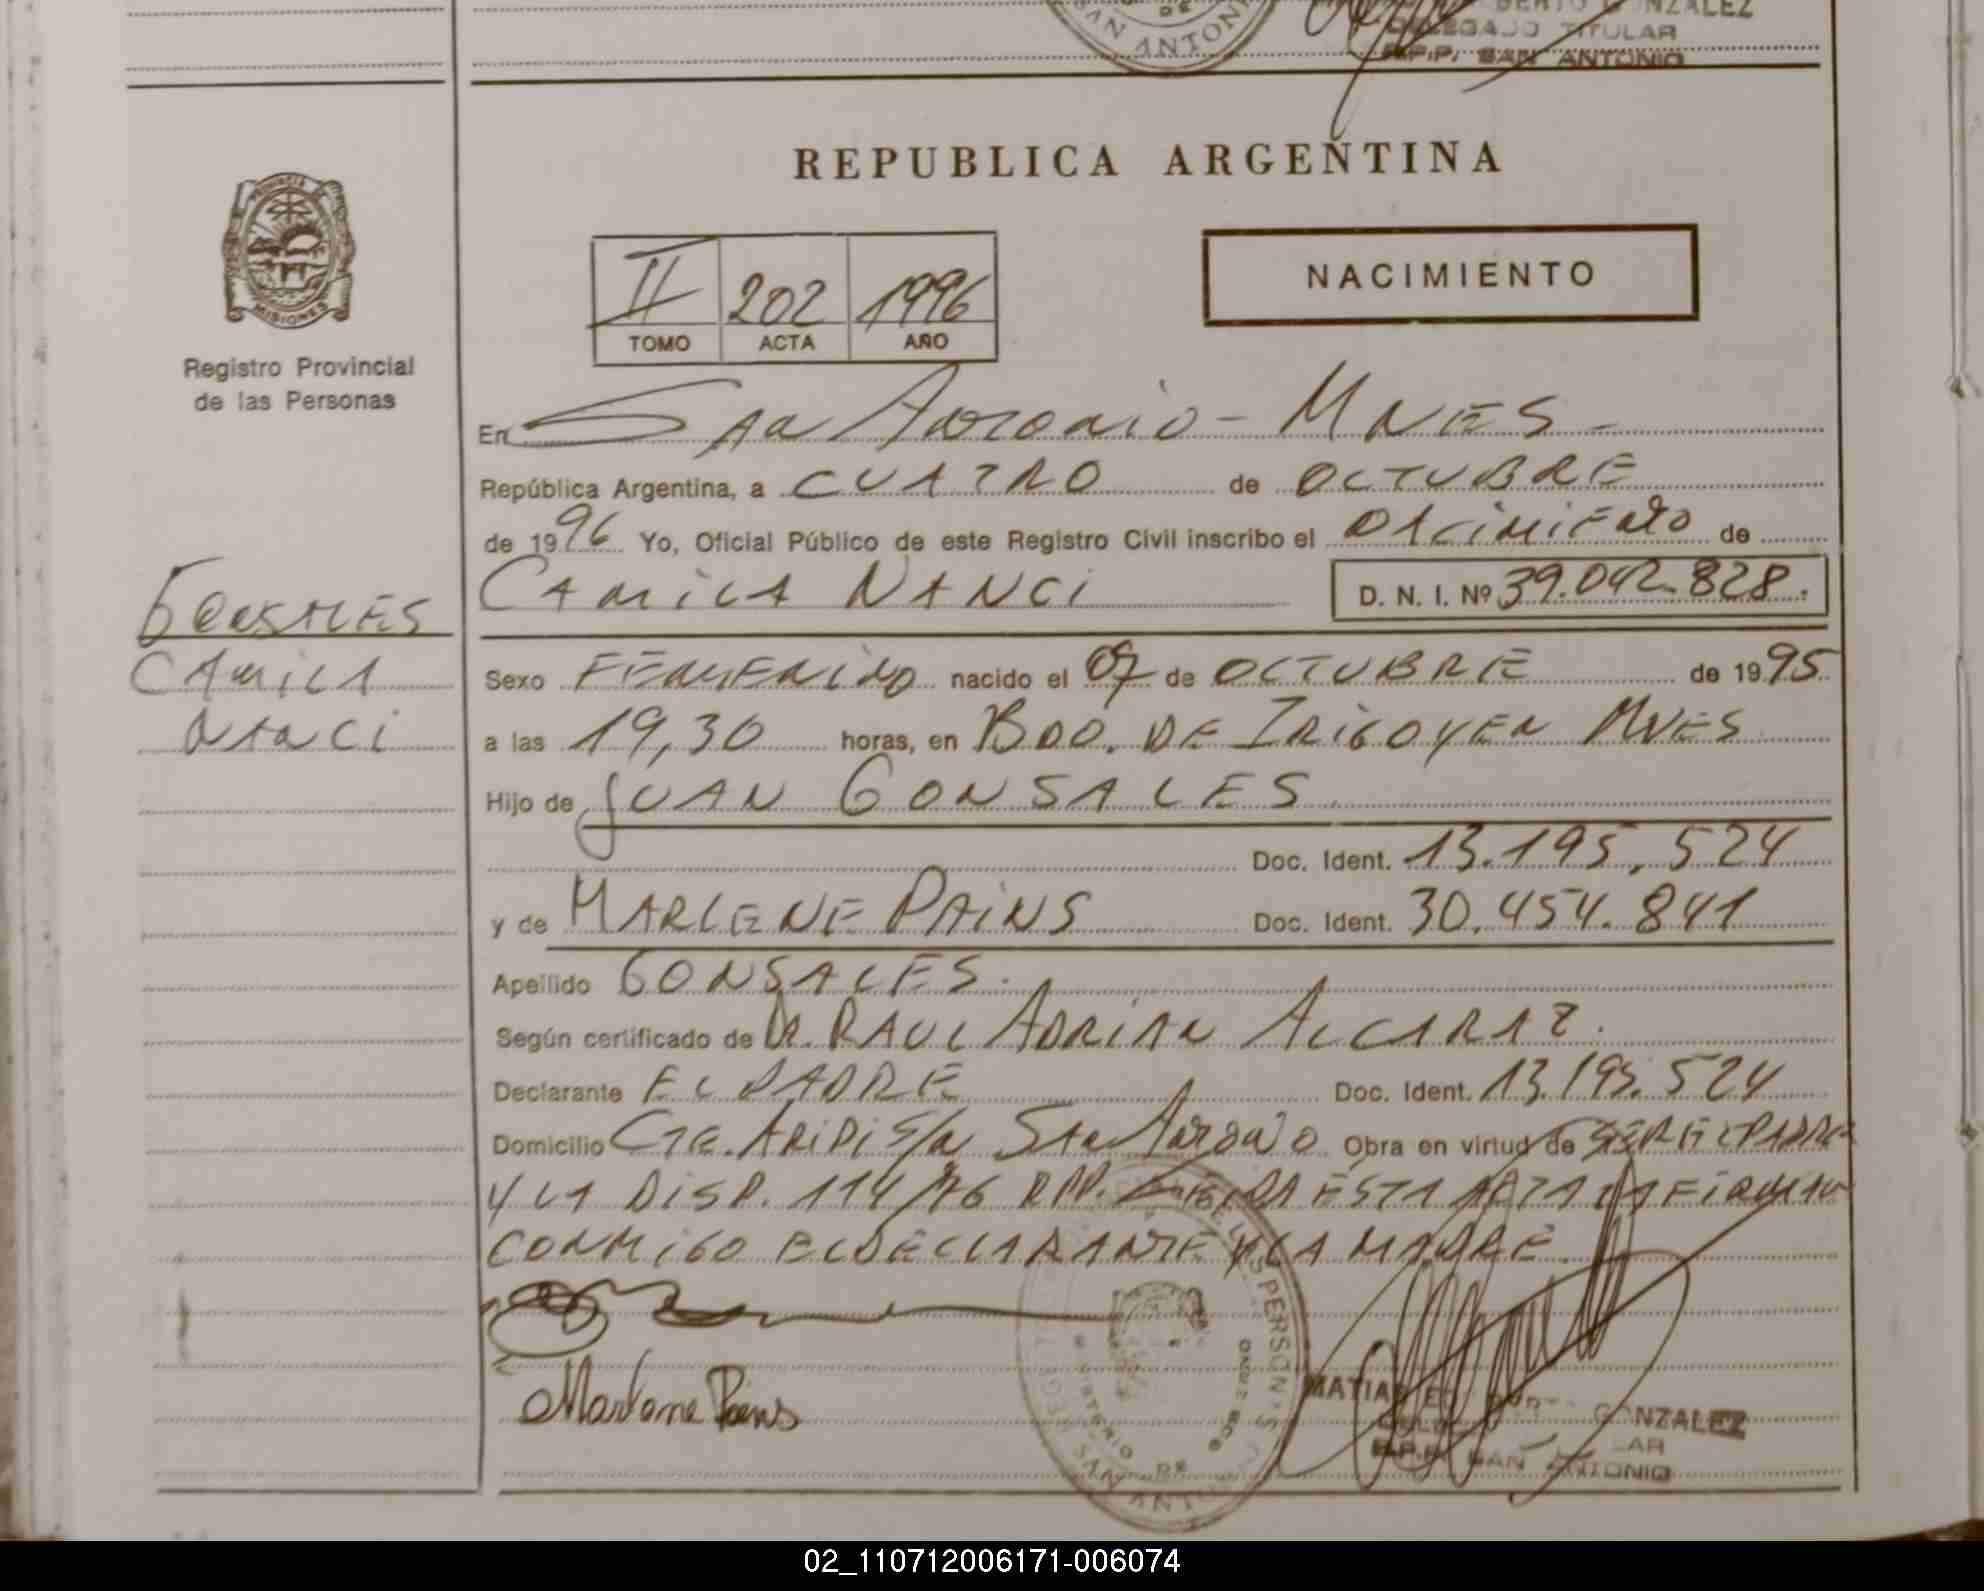 BERTO GONZALEZ
DELEGADO TITULAR
R.P.P. SAN ANTONIO
SAN ANTONIO
DE
REPUBLICA ARGENTINA
PROVINCIA DE
MISIONES
Registro Provincial
de las Personas
II 202 1996
TOMO ACTA AÑO
NACIMIENTO
En San Antonio - MNES -
República Argentina, a CUATRO de OCTUBRE
de 1996 Yo, Oficial Público de este Registro Civil inscribo el nacimiento de
CAMILA NANCI D. N. I. Nº 39.042.828.
GONSALES
CAMILA
NANCI
Sexo FEMENINO nacido el 07 de OCTUBRE de 1995
a las 19,30 horas, en BDO. DE IRIGOYEN MNES
Hijo de JUAN GONSALES
Doc. Ident. 13.195.524
y de MARLENE PAINS Doc. Ident. 30.454.841
Apellido GONSALES.
Según certificado de DR. RAUL ADRIAN ALCARAZ.
Declarante EL PADRE Doc. Ident. 13.195.524
Domicilio CTE. ARIPI S/N San Antonio Obra en virtud de SER EL PADRE
Y LA DISP. 114/76 RPP. LEIDA ESTA ACTA LA FIRMAN
CONMIGO EL DECLARANTE Y LA MADRE.
Marlene Pains
MATIAS GONZALEZ
R.P.P. SAN ANTONIO
SAN ANTONIO
02_110712006171-006074